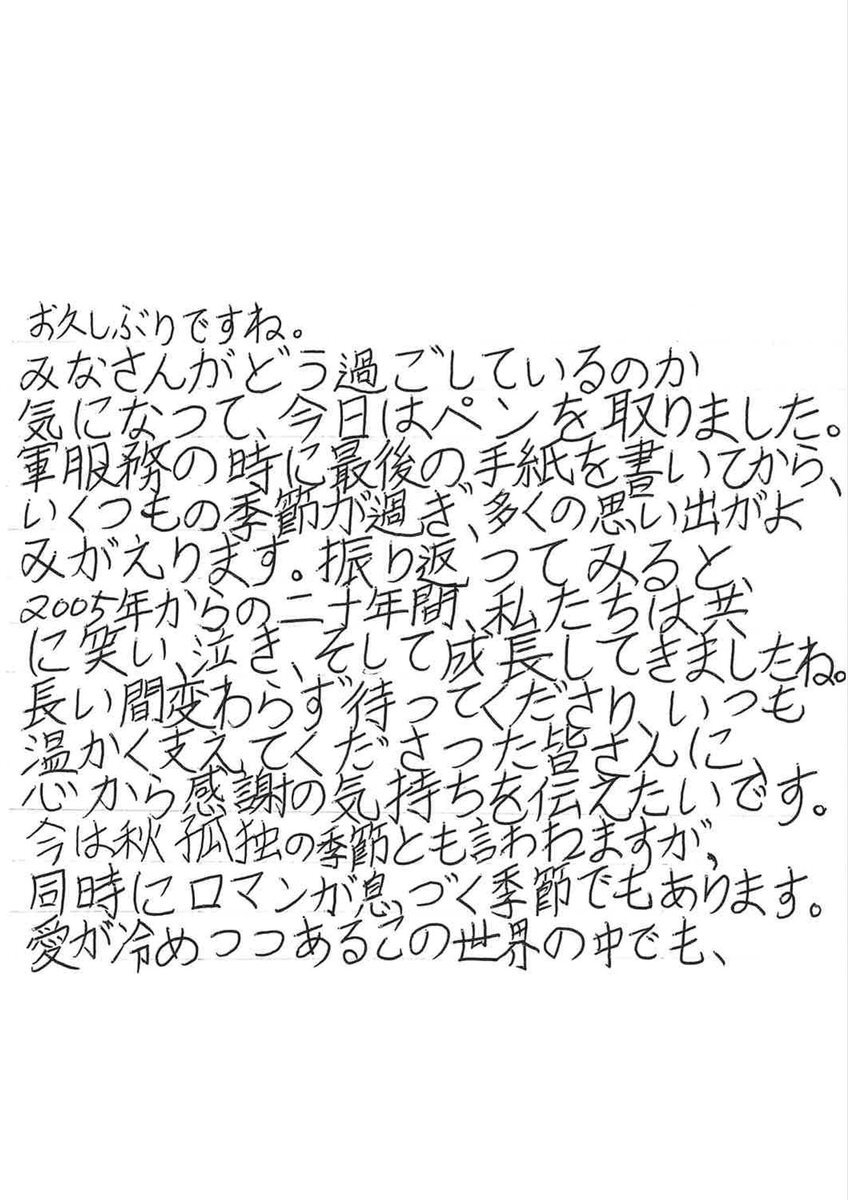 お久しぶりですね。
みなさんがどう過ごしているのか
気になって、今日はペンを取りました。
軍服務の時に最後の手紙を書いてから、
いくつもの季節が過ぎ、多くの思い出がよ
みがえります。振り返ってみると、
2005年からの二十年間、私たちは共
に笑い、泣き、そして成長してきましたね。
長い間変わらず待ってくださり、いつも
温かく支えてくださった皆さんに、
心から感謝の気持ちを伝えたいです。
今は秋孤独の季節とも言われますが、
同時にロマンが息づく季節でもあります。
愛が冷めつつあるこの世界の中でも、